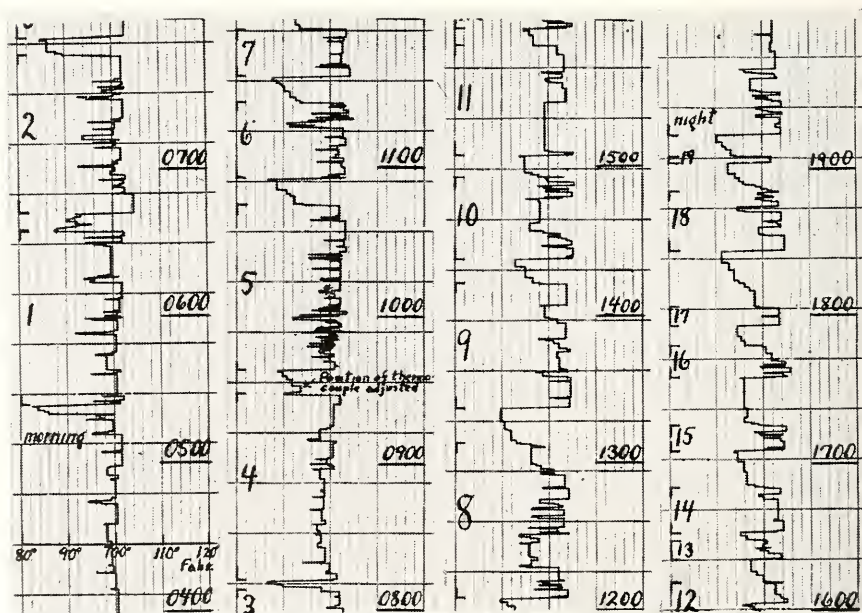 2
0700
1
0600
morning
0500
80° 90° 100° 110° 120°
Fahr.
0400
7
6
1100
5
1000
Position of thermo
couple adjusted
0900
4
3
0800
11
1500
10
1400
9
1300
8
1200
night
19
1900
18
17
1800
16
15
1700
14
13
12
1600